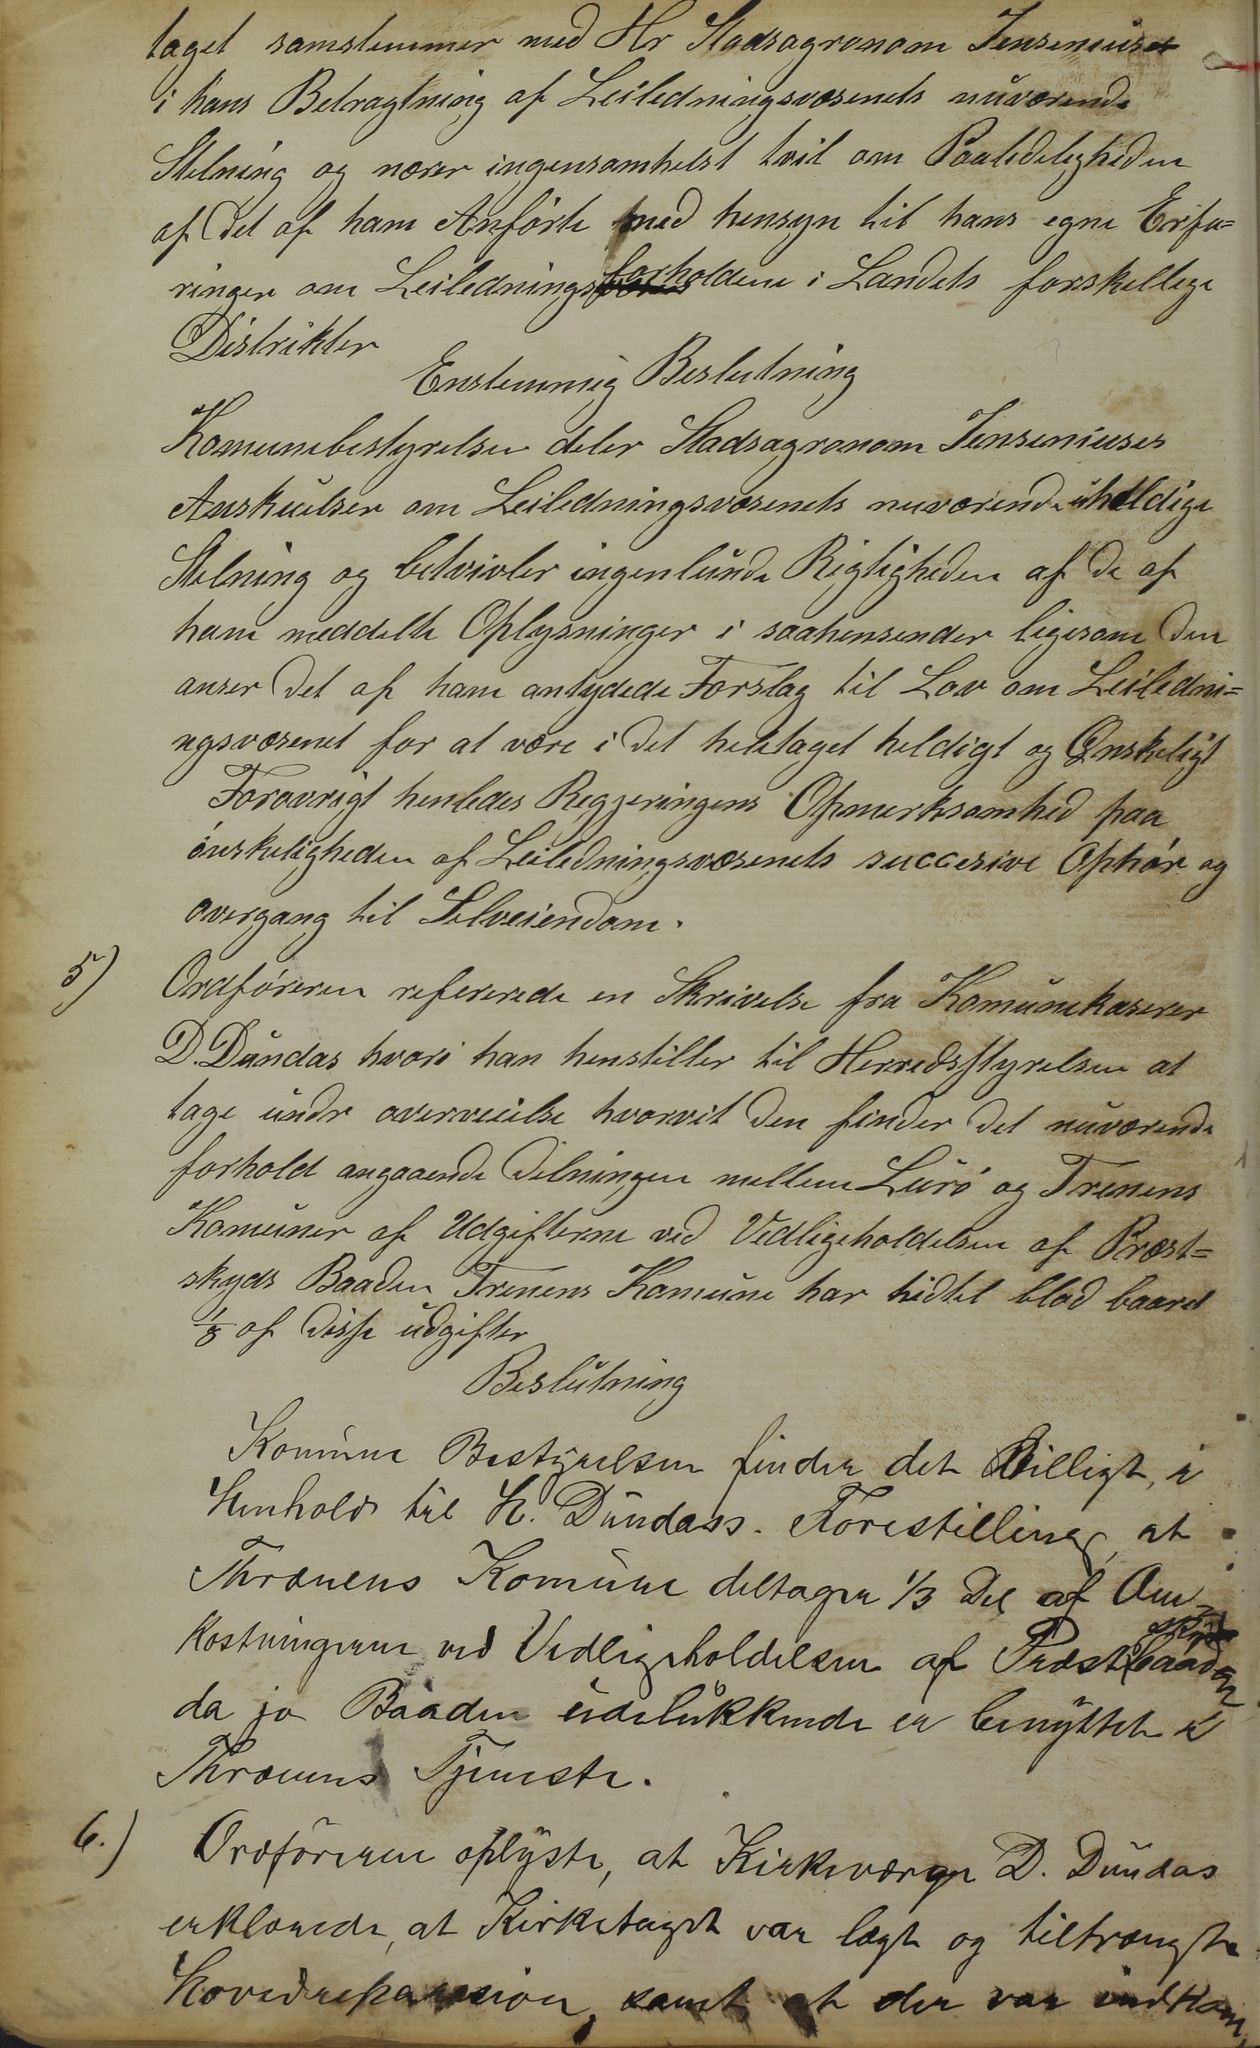 taget samstemmer med Hr Stadsagronom Jensenius
i hans Betragtning af Leiledningsvæsenets nuværende
Stelning og nærer ingensomhelst tvil om Paalideligheden
af det af ham Anførte med hensyn til hans egne Erfa-
ringer om Leiledningsforholdene i Landets forskellige
Distrikter
Enstemmig Beslutning
Komunebestyrelsen deler Stadsagronom Jenseniuses
Anskuelser om Leiledningsvæsenets nuværende uheldige
Stelning og betvivler ingenlunde Rigtigheden af de af
ham meddelte Oplysninger i saahenseender ligesom den
anser det af ham antydede Forslag til Lov om Leiledni-
ngsvæsenet for at være i det heletaget heldigt og Ønskeligt
Forøvrigt henledes Regjeringens Opmerksomhed paa
ønskeligheden af Leiledningsvæsenets succesive Ophør og
overgang til Selveiendom.
5) Ordføreren refererede en Skrivelse fra Komunekaserer
D. Dundas hvori han henstiller til Herredsstyrelsen at
tage undr overveielse hvorvit den finder det nuværende
forhold angaaende Delningen mellem Lurø og Trenens
Komuner af Udgifterne ved Vedligeholdelsen af Præst-
skyds Baaden Trenens Komune har hidtil blod baaret
1/8 af disse udgifter
Beslutning
Komune Bestyrelsen finder det Billigt, i
Henhold til H. Dundass. Forestilling, at
Thrænens Komune deltager 1/3 Del af Om-
kostningerne ved Vedligeholdelsen af Præstskydsbaaden
da jo Baaden udelukkende er benyttet i
Thrænens Tjeneste.
6.) Ordføreren oplyste, at Kirkeværge D. Dundas
erklærede, at Kirketaget var lægt og tiltrængte
Hovedreparasion, samt at der var indkom,